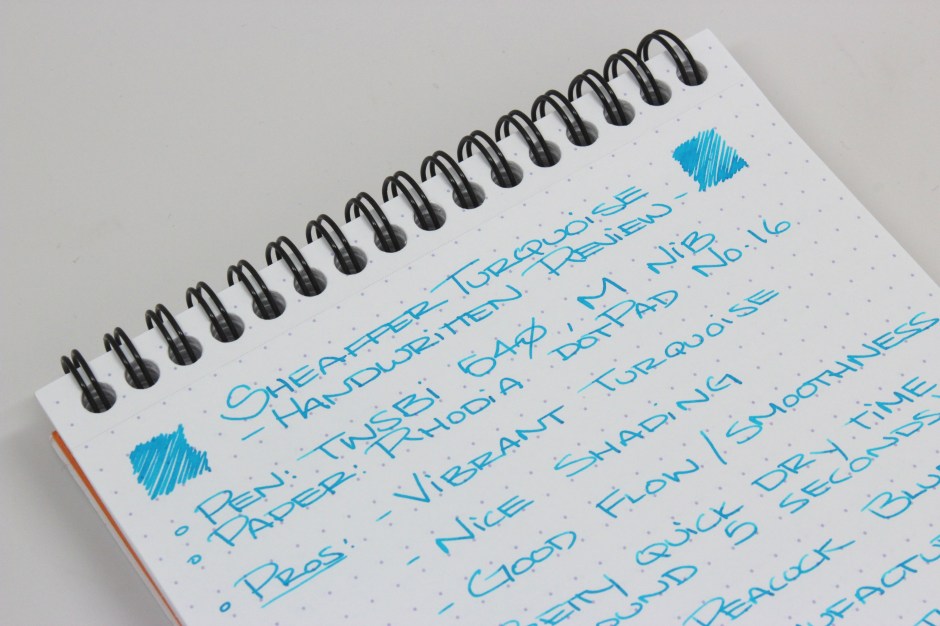 SHEAFFER TURQUOISE
- HANDWRITTEN REVIEW -
◦ PEN: TWSBI 540, M NIB
◦ PAPER: RHODIA DOTPAD No. 16
◦ PROS: - VIBRANT TURQUOISE
- NICE SHADING
- GOOD FLOW/SMOOTHNESS
QUICK DRY TIME
5 SECONDS
PEACOCK